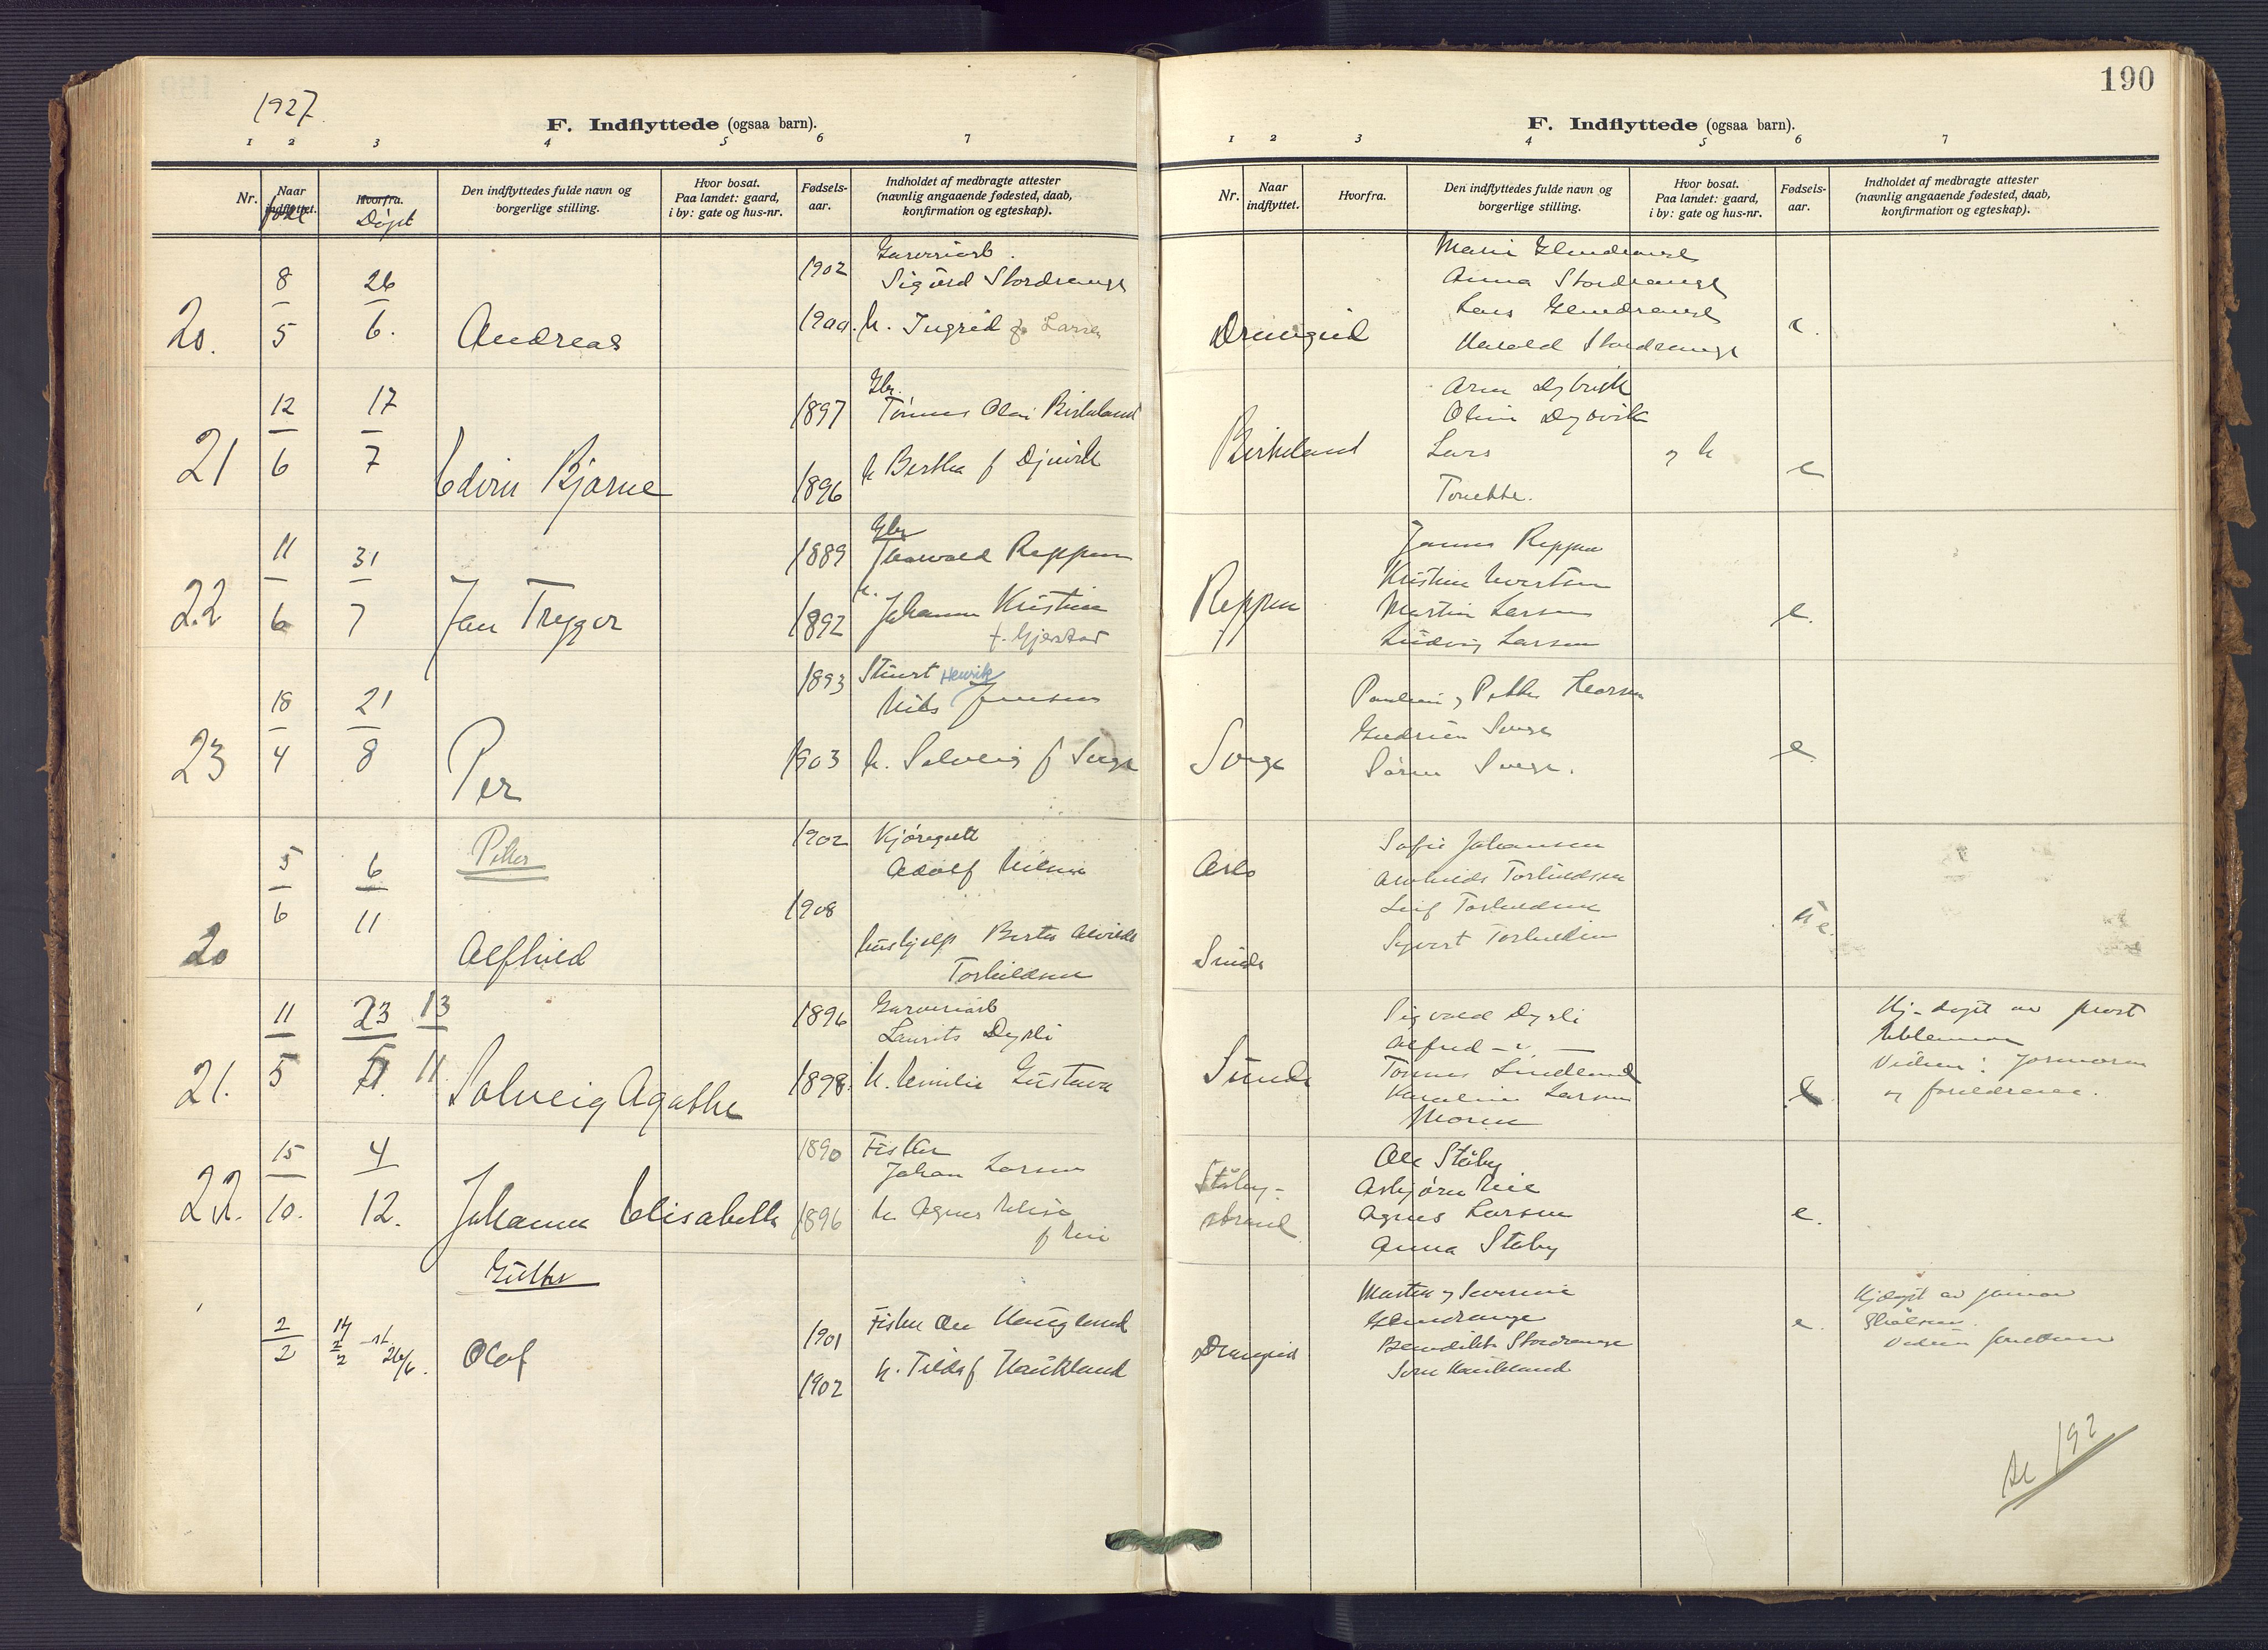 1927.
F. Indflyttede (ogsaa barn).
1 2 3 4 5 6 7
Nr.
Naar indflyttet.
født
Hvorfra.
Døpt
Den indflyttedes fulde navn og
borgerlige stilling.
Hvor bosat.
Paa landet: gaard,
i by: gate og hus-nr.
Fødsels-
aar.
Indholdet af medbragte attester
(navnlig angaaende fødested, daab,
konfirmation og egteskap).
20. 8/5 26/6. Andreas
1902 Garveriarb.
Sigurd Stordrange
1900. h. Ingrid f Larsen
21 12/6 17/7 Edvin Bjarne
1897 Gbr.
Tønnes Olai Birkeland
1896 h Bertha f Djuvik
22 11/6 31/7 Jan Trygve
1889 Gbr
Thorvald Reppen
1892 h. Johanne Kristine
f. Gjerstad
23 18/4 21/8 Per
1893 Stuert Henrik
Nils Jensen
1903 h. Solveig f Svege
20 5/6 6/11 Alfhild
Peter
1902 Kjøregutt
Adolf Nilsen
1908 hushjelp Berta Alvilde
Torkildsen
21. 11/5 23/5 13/11 Solveig Agathe
1896 Garveriarb
Laurits Dyrli
1898. h. Emilie Gustava
22. 15/10. 4/12. Johanna Elisabeth
1890 Fisker
Johan Larsen
1896 h Agnes Elise
f Eie
Gutter
2/2 14/2 st. 26/6. Olof
1901 Fisker Ole Haugland
1902 h. Tilda f Haukland
190
F. Indflyttede (ogsaa barn).
1 2 3 4 5 6 7
Nr.
Naar
indflyttet.
Hvorfra.
Den indflyttedes fulde navn og
borgerlige stilling.
Hvor bosat.
Paa landet: gaard,
i by: gate og hus-nr.
Fødsels-
aar.
Indholdet af medbragte attester
(navnlig angaaende fødested, daab,
konfirmation og egteskap).
Drangeid
Marie Glendrange
Anna Stordrange
Lars Glendrange
Harald Stordrange
e.
Birkeland
Arne Dybvik
Oline Dybvik
Lars og h
Tonette.
e
Reppen
Jonas Reppen
Kristine Iversen
Martin Larsen
Ludvig Larsen
e.
Svege
og Petter
Gudrun Svege
Søren Svege.
e
Oslo
Sunde
Sofie Johansen
Torkildsen
Leif Torkildsen
Syvert Torkildsen
u e.
Sunde
Sigvald Dyrli
Alfred
Tønnes Lindland
Karoline Larsen
Moren
e
Hj.døpt av prost
Vidner: jormoren
og foreldrene.
Støby-
strand
Ole Støby
Asbjørn Eie
Agnes Larsen
Anna Støby
e.
Drangeid
Marten og Severine
Glendrange
Benedikte Stordrange
Haukland
e.
Hj.døpt av jormor
foreldrene
Se 192